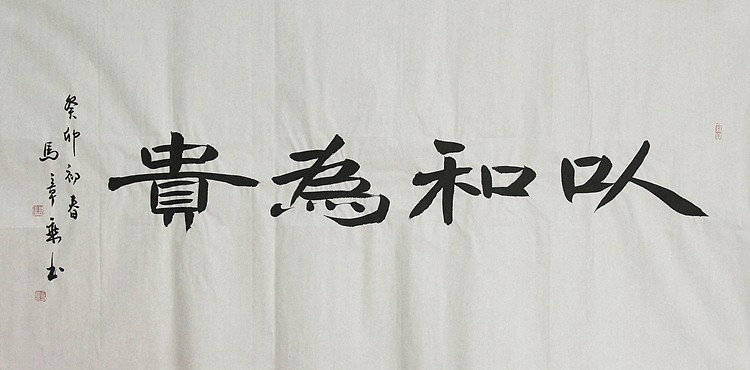 以和為貴
癸卯初春
馬章乗书